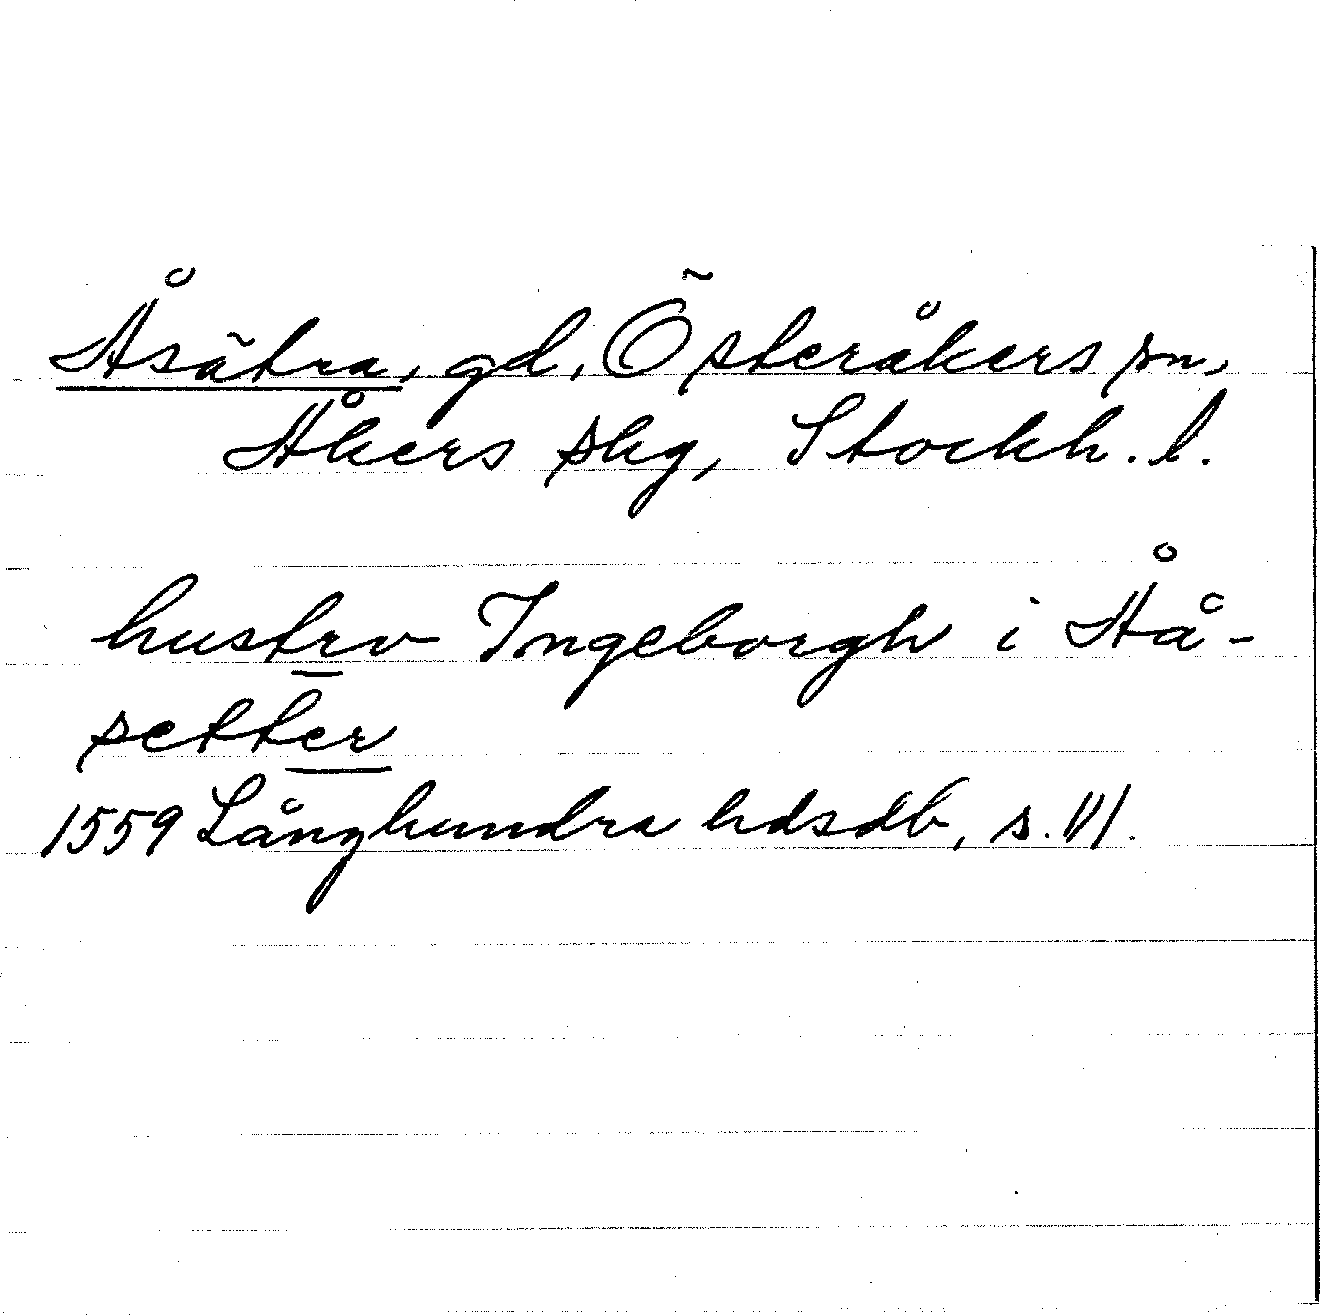 Åsätra, gd, Österåkers sn,
Åkers skg, Stockh. l.
hustrv Ingeborgh i Åå-
setter
1559 Långhundra hdsdb, s. 111.